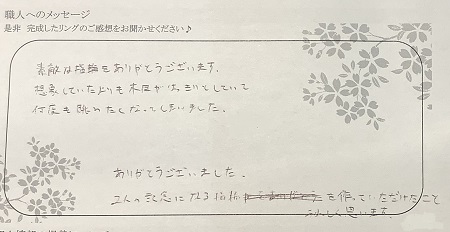 職人へのメッセージ
是非 完成したリングのご感想をお聞かせください♪
素敵な指輪をありがとうございます。
想像していたよりも木目がはっきりしていて
何度も眺めたくなってしまいました。
ありがとうございました。
2人の記念になる指輪を作っていただけたこと
うれしく思います。